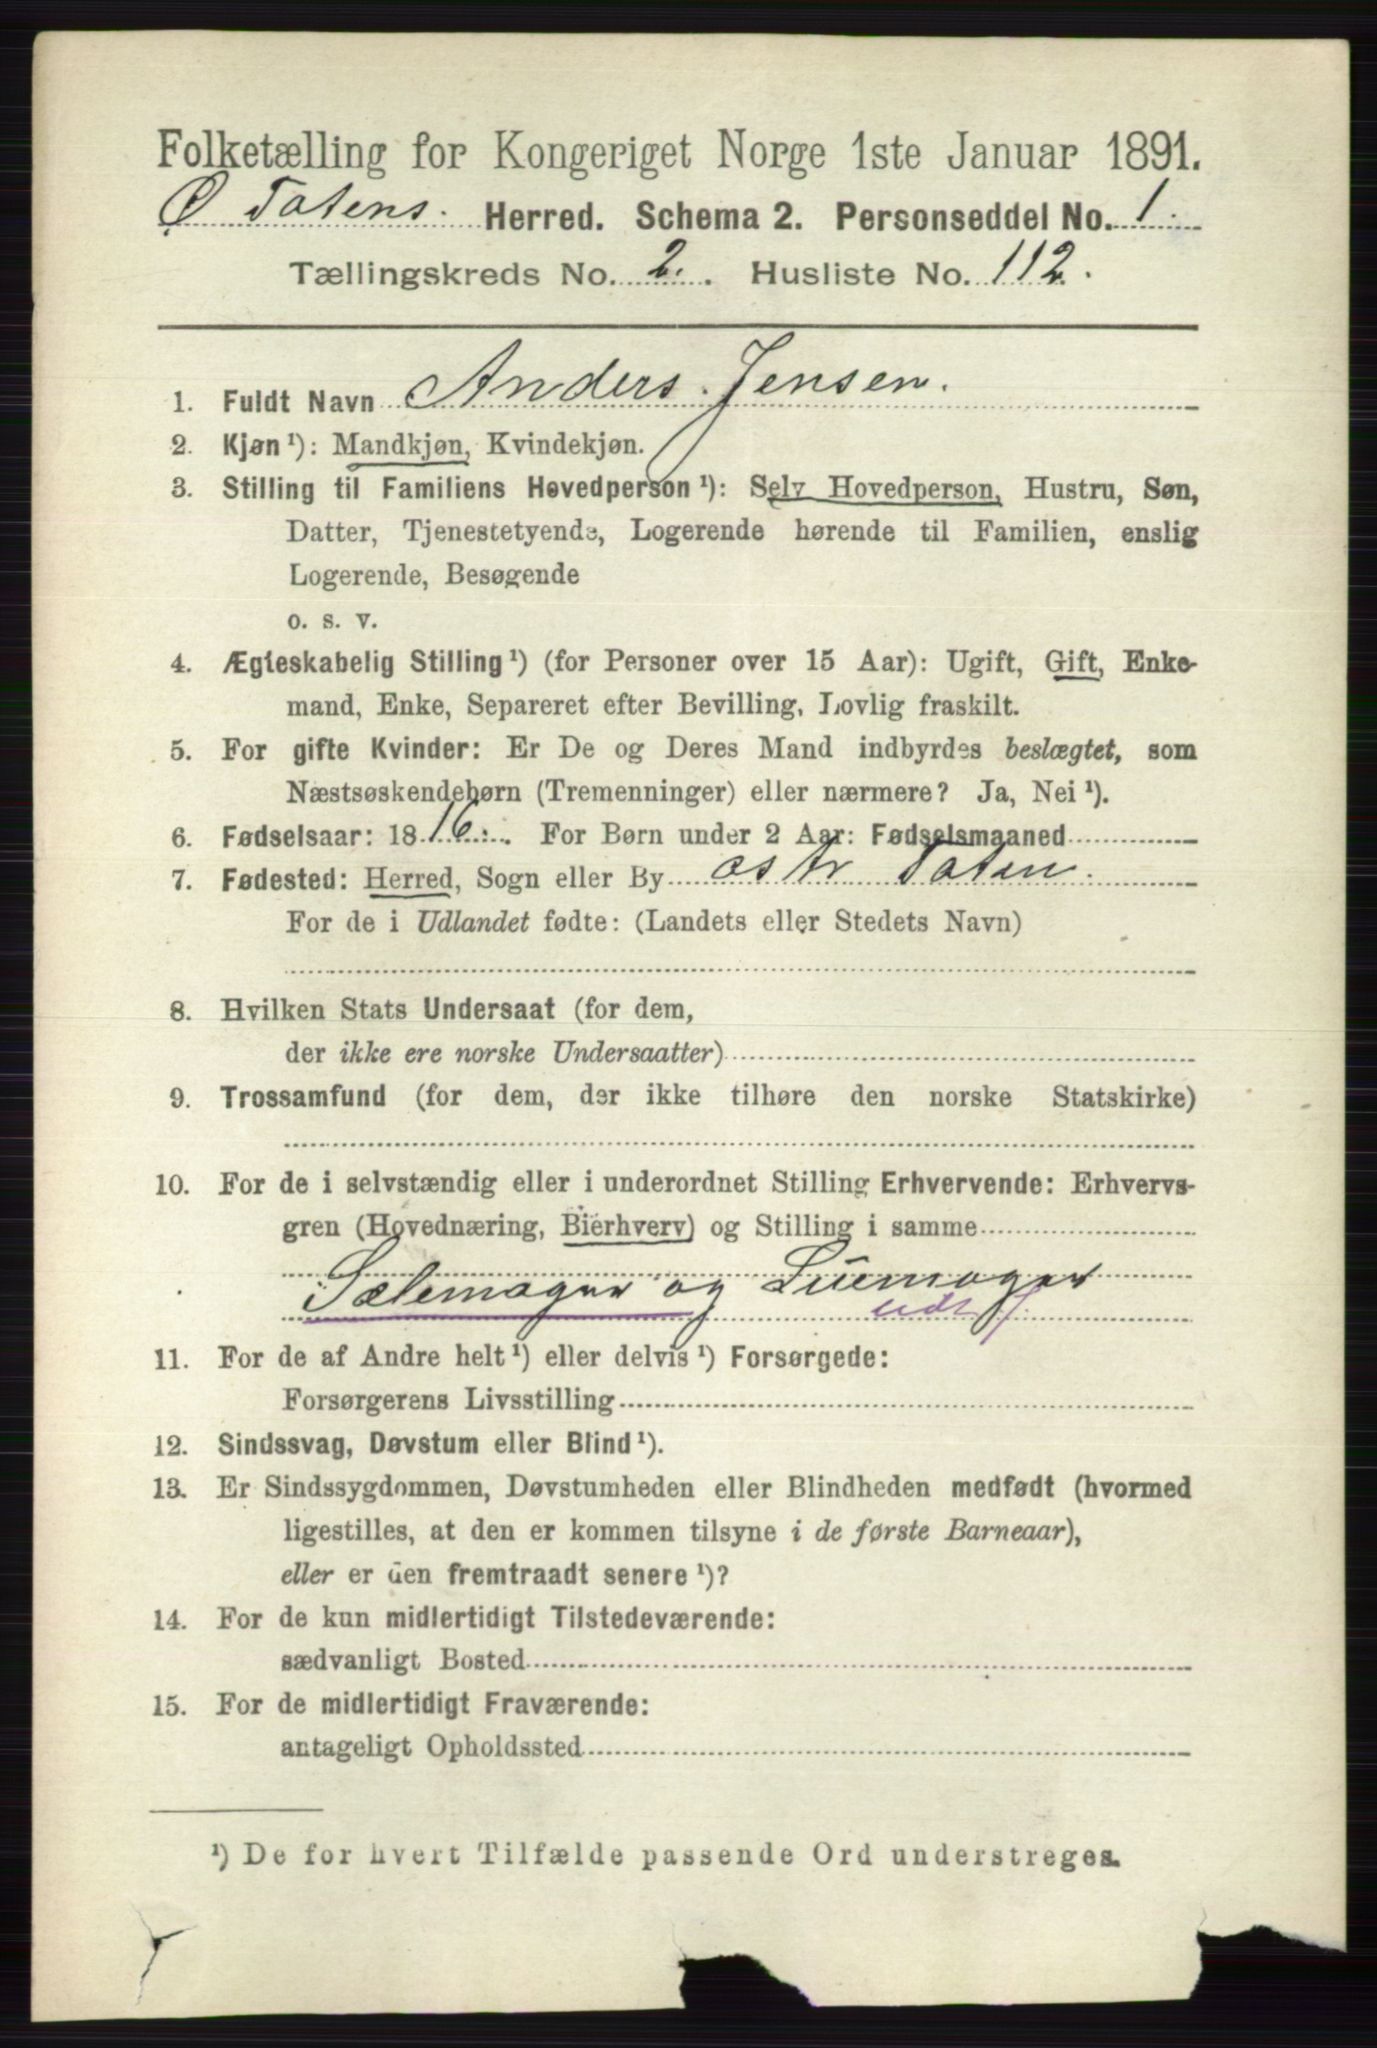 Folketælling for Kongeriget Norge 1ste Januar 1891.
Ø Totens. Herred. Schema 2. Personseddel No. 1.
Tællingskreds No. 2. Husliste No. 112.
1. Fuldt Navn Anders Jensen.
2. Kjøn ¹): Mandkjøn, Kvindekjøn.
3. Stilling til Familiens Hovedperson ¹): Selv Hovedperson, Hustru, Søn,
Datter, Tjenestetyende, Logerende hørende til Familien, enslig
Logerende, Besøgende
o. s. v.
4. Ægteskabelig Stilling ¹) (for Personer over 15 Aar): Ugift, Gift, Enke-
mand, Enke, Separeret efter Bevilling, Lovlig fraskilt.
5. For gifte Kvinder: Er De og Deres Mand indbyrdes beslægtet, som
Næstsøskendebørn (Tremenninger) eller nærmere? Ja, Nei ¹).
6. Fødselsaar: 1816. For Børn under 2 Aar: Fødselsmaaned
7. Fødested: Herred, Sogn eller By østr Toten.
For de i Udlandet fødte: (Landets eller Stedets Navn)
8. Hvilken Stats Undersaat (for dem,
der ikke ere norske Undersaatter)
9. Trossamfund (for dem, der ikke tilhøre den norske Statskirke)
10. For de i selvstændig eller i underordnet Stilling Erhvervende: Erhvervs-
gren (Hovednæring, Bierhverv) og Stilling i samme
Sælemager og Luemager
11. For de af Andre helt ¹) eller delvis ¹) Forsørgede:
Forsørgerens Livsstilling
12. Sindssvag, Døvstum eller Blind ¹).
13. Er Sindssygdommen, Døvstumheden eller Blindheden medfødt (hvormed
ligestilles, at den er kommen tilsyne i de første Barneaar),
eller er den fremtraadt senere ¹)?
14. For de kun midlertidigt Tilstedeværende:
sædvanligt Bosted
15. For de midlertidigt Fraværende:
antageligt Opholdssted
¹) De for hvert Tilfælde passende Ord understreges.